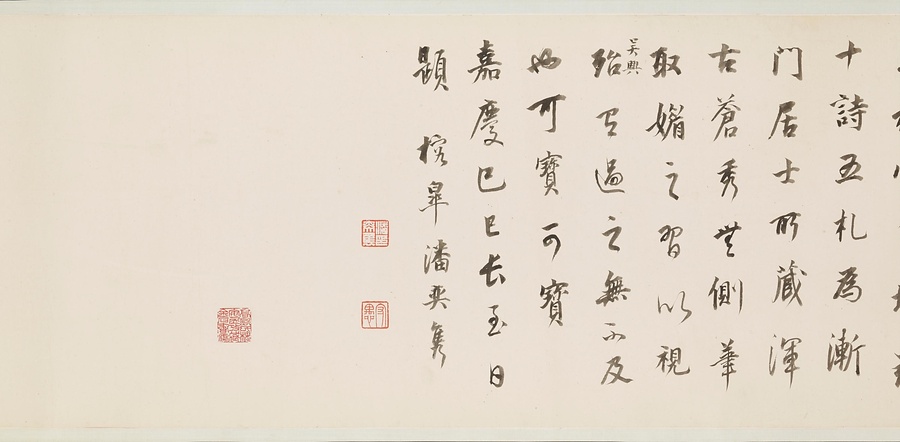 十詩五札為漸
門居士所藏渾
古蒼秀無側華
取媚之習以視
吳興
殆有過之無不及
也可寶可寶
嘉慶己巳長至日
題 榕皋潘奕雋